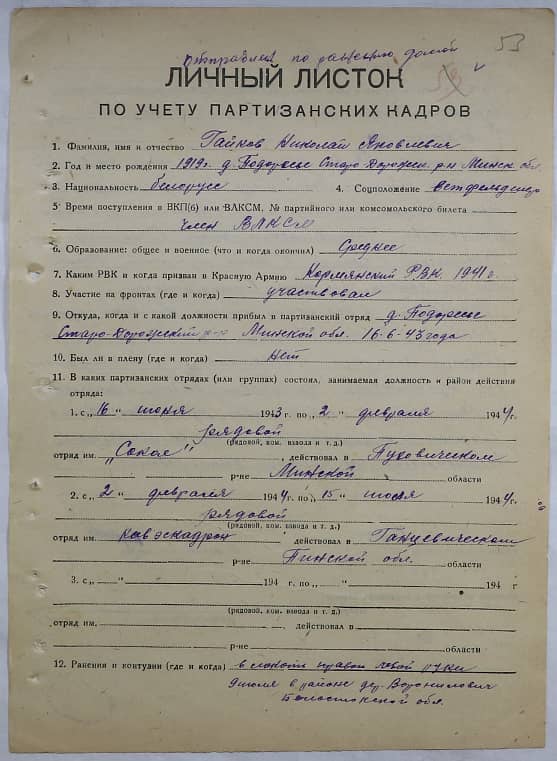 отправлен по ранению домой
53
ЛИЧНЫЙ ЛИСТОК
ПО УЧЕТУ ПАРТИЗАНСКИХ КАДРОВ
1. Фамилия, имя и отчество Гайков Николай Яковлевич
2. Год и место рождения 1919г. д. Подоресье Старо-Дорожск. р-н Минск. обл.
3. Национальность белорусс 4. Соцположение
5. Время поступления в ВКП(б) или ВЛКСМ, № партийного или комсомольского билета
член ВЛКСМ
6. Образование: общее и военное (что и когда окончил) Среднее
7. Каким РВК и когда призван в Красную Армию Кормянский РВК 1941 г.
8. Участие на фронтах (где и когда) участвовал
9. Откуда, когда и с какой должности прибыл в партизанский отряд д. Подоресье
Старо-Дорожский р-н Минской обл. 16-6-43 года
10. Был ли в плену (где и когда) нет
11. В каких партизанских отрядах (или группах) состоял, занимаемая должность и район действия
отряда:
1. с „16 " июня 1943 г. по „2 " февраля 1944г.
рядовой
(рядовой, ком. взвода и т. д.)
отряд им. „Сокол" действовал в Пуховическом
р-не Минской области
2. с „2 " февраля 1944 г. по „15 " июля 1944г.
рядовой
(рядовой, ком. взвода и т. д.)
отряд им. кавэскадрон действовал в Ганцевическом
р-не Пинской обл. области
3. с „ " 194 г. по „ " 194 г
(рядовой, ком. взвода и т. д.)
отряд им. действовал в
р-не области
12. Ранения и контузии (где и когда) в локоть правой левой руки
9 июля в районе дер. Воронилович
Белостокской обл.